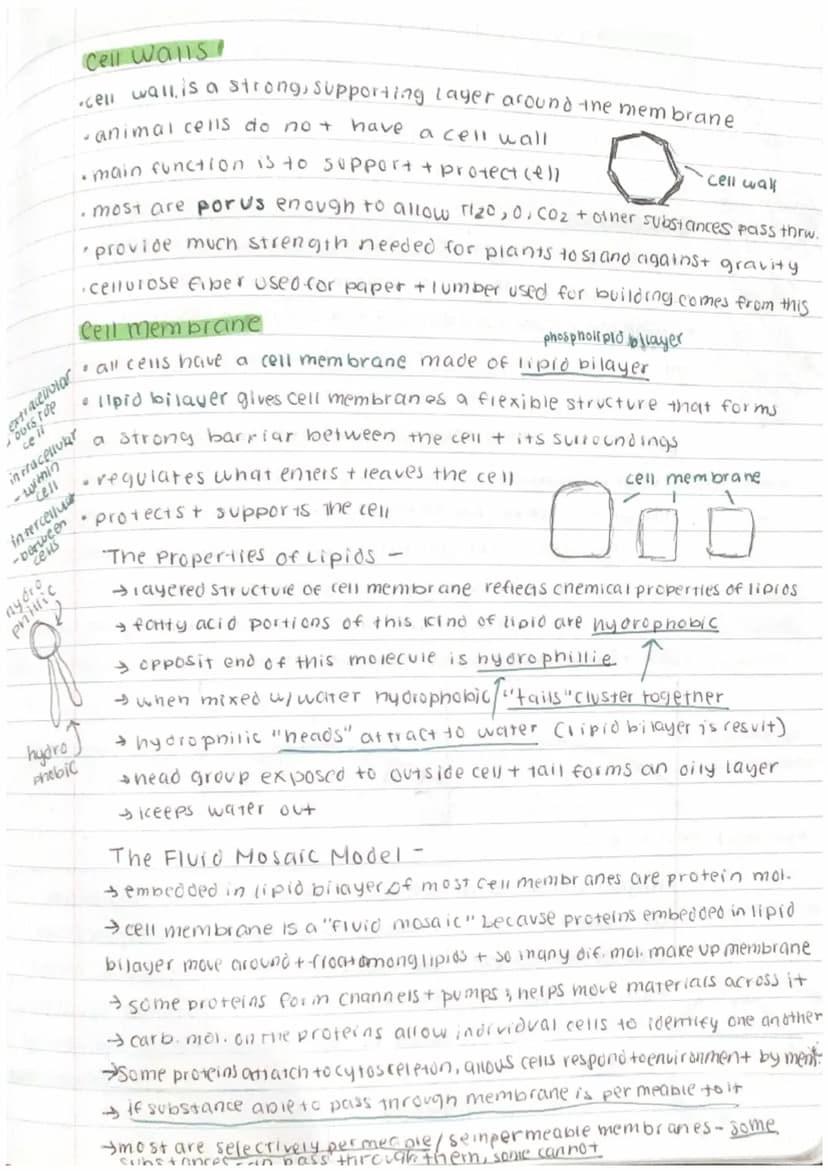 Cell Walls
• cell wall is a strong, supporting layer around the membrane
• animal cells do not have a cell wall
• main function is to support + protect cell
cell wall
• most are porus enough to allow H2O, O, CO2 + other substances pass thrw.
• provide much strength needed for plants to stand against gravity
• cellulose fiber used for paper + lumber used for building comes from this
Cell Membrane
phospholipid bilayer
• all cells have a cell membrane made of lipid bilayer
• lipid bilayer gives cell membranes a flexible structure that forms
a strong barriar between the cell + its surroundings
• regulates what enters + leaves the cell
cell membrane
• protects + supports the cell
extracellular
- outside
cell
intracellular
- within
cell
intercellular
- between
cells
The Properties of Lipids -
→ layered structure of cell membrane reflects chemical properties of lipids
→ fatty acid portions of this kind of lipid are hydrophobic
→ opposit end of this molecule is hydrophillie
→ when mixed w/water hydrophobic "tails" cluster together
→ hydrophilic "heads" attract to water (lipid bilayer is result)
→ head group exposed to outside cell + tail forms an oily layer
→ keeps water out
hydro
philic
hydro
phobic
The Fluid Mosaic Model -
→ embedded in lipid bilayer of most cell membranes are protein mol.
→ cell membrane is a "fluid mosaic" because proteins embedded in lipid
bilayer move around + float among lipids + so many dif. mol. make up membrane
→ some proteins form channels + pumps ; helps move materials across it
→ carb. mol. on the proteins allow individual cells to identify one another
→ Some proteins attatch to cytosceleton, allows cells respond to environment by
→ if substance able to pass through membrane is permeable to it
→ most are selectively permeable / semipermeable membranes - some
substances can pass through them, some cannot